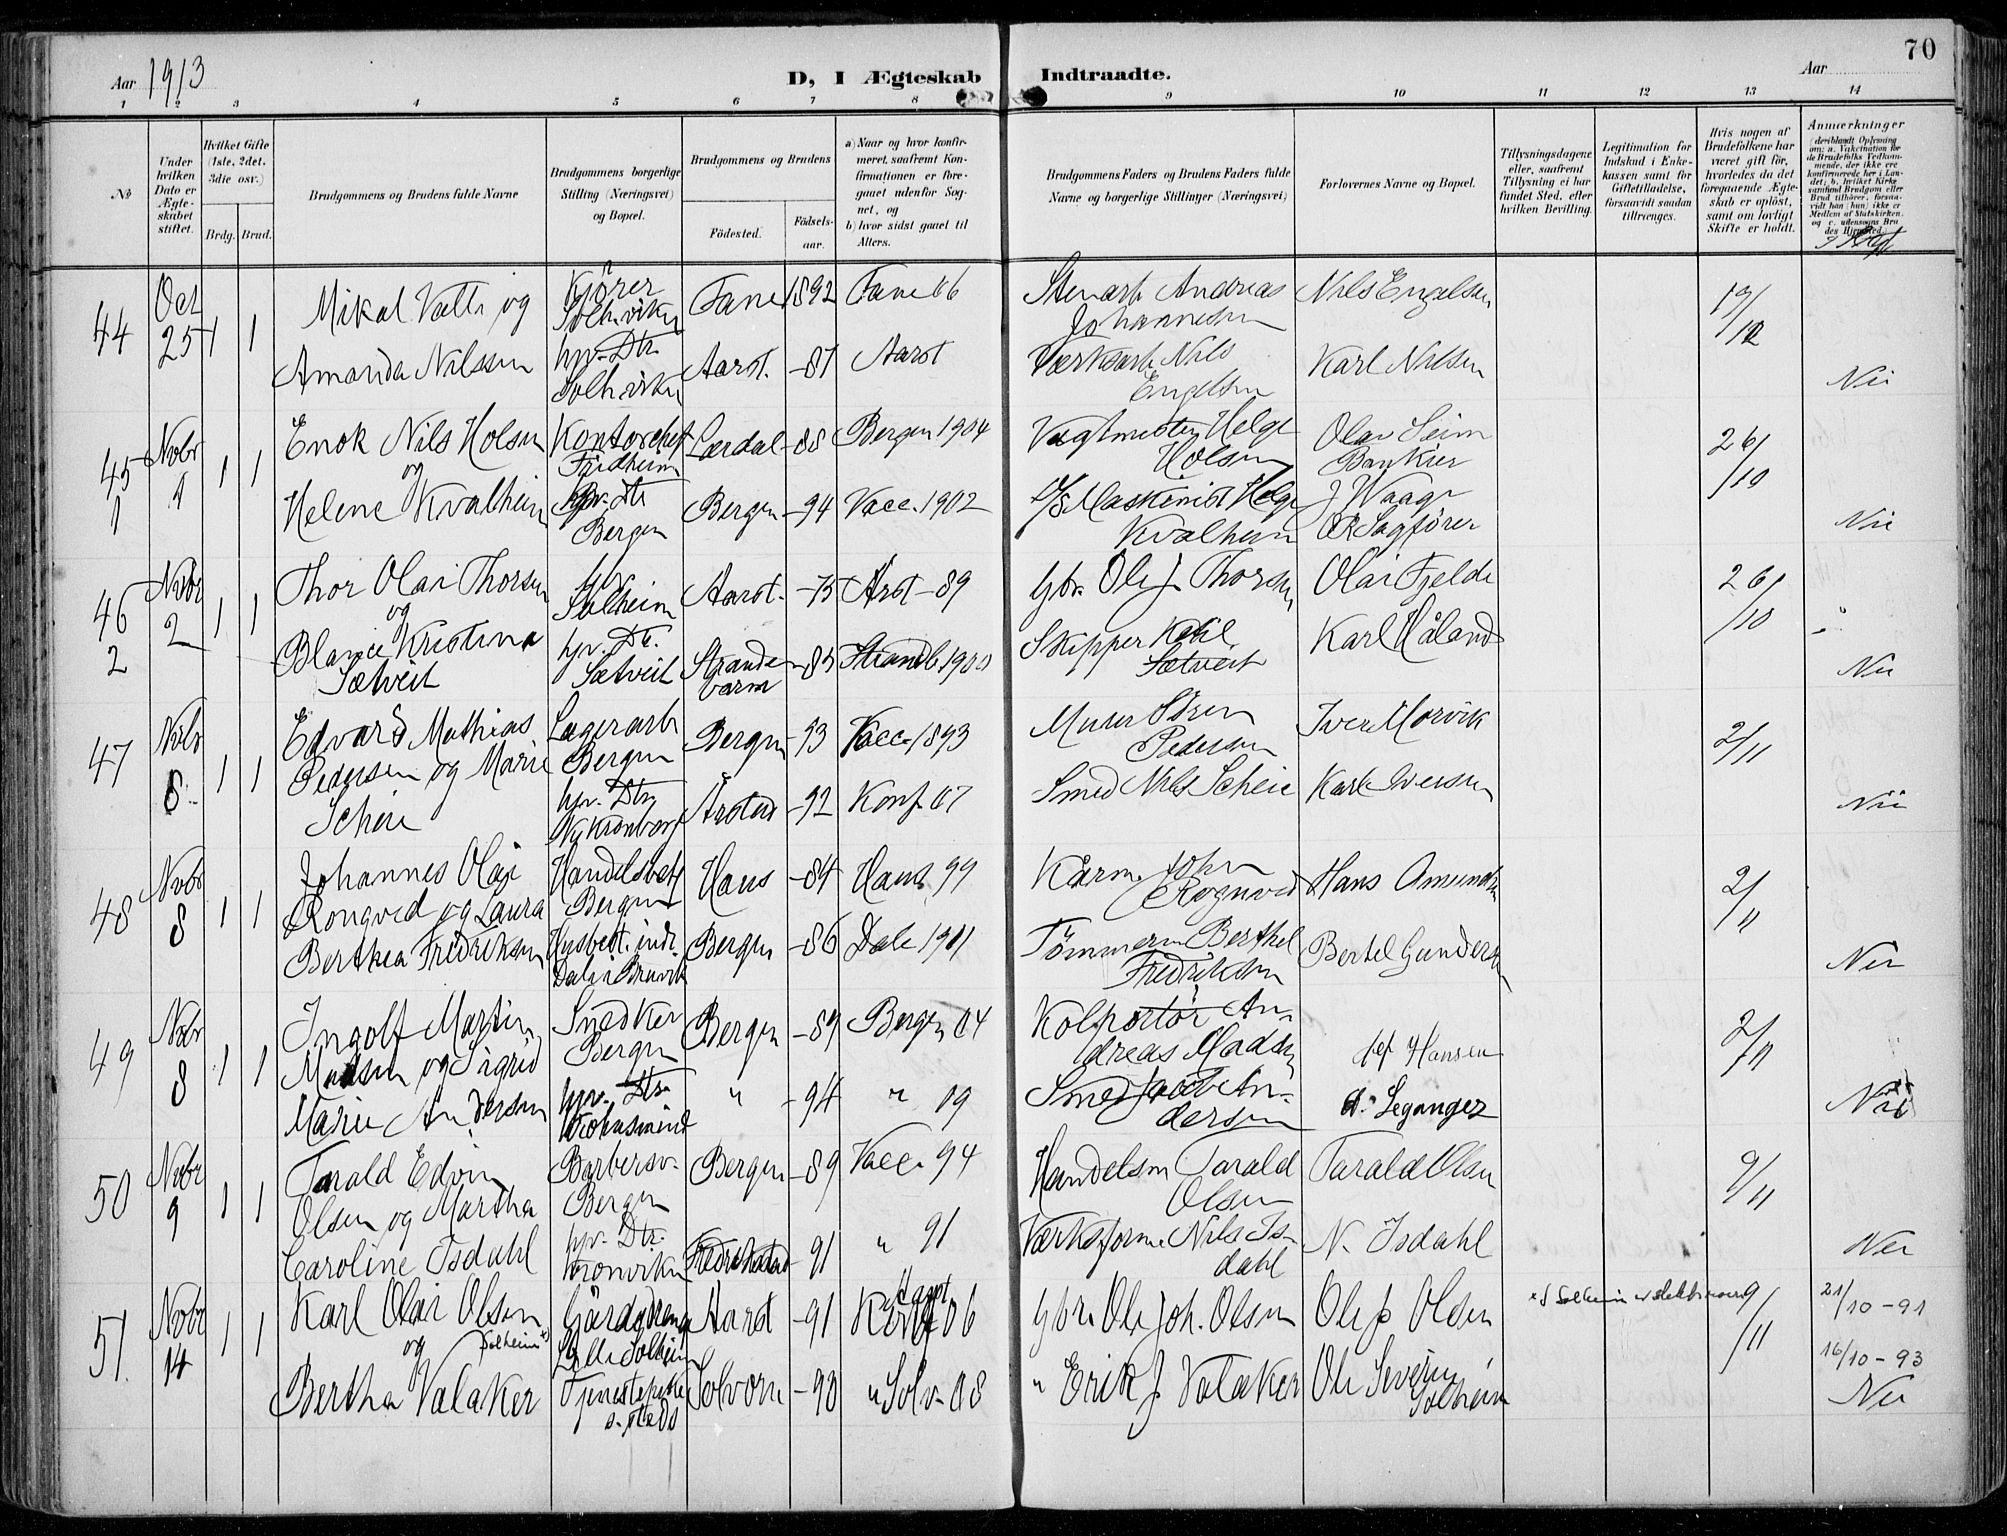 70
Aar 1913
D, I Ægteskab Indtraadte.
Aar
1 2 3 4 5 6 7 8 9 10 11 12 13 14
№
Under hvilken Dato er Ægteskabet stiftet.
Hvilket Gifte (1ste, 2det. 3die osv.)
Brdg. Brud.
Brudgommens og Brudens fulde Navne
Brudgommens borgerlige Stilling (Næringsvei) og Bopæl.
Brudgommens og Brudens
Födested.
Födsels-aar.
a) Naar og hvor konfirmeret, saafremt Konfirmationen er foregaaet udenfor Sognet, og
b) hvor sidst gaaet til Alters.
Brudgommens Faders og Brudens Faders fulde Navne og borgerlige Stillinger (Næringsvei)
Forlovernes Navne og Bopæl.
Tillysningsdagene eller, saafremt Tillysning ei har fundet Sted, efter hvilken Bevilling.
Legitimation for Indskud i Enkekassen samt for Giftetilladelse, forsaavidt saadan tiltrænges.
Hvis nogen af Brudefolkene har været gift för, hvorledes da det foregaaende Ægteskab er oplöst, samt om lovligt Skifte er holdt.
Anmærkninger
44 Oct 25 1 1
Mikal Valle og
Kjörer Solheimsviken
Fane 1892 Fane 06
Andreas Johannesen
Nils Engelsen
19/10
Amanda Nilssen
hjv. Dtr.
Aarst. -87 Aarst
Værksarb. Nils Engelsen
Karl Nilsen
Nei
45 1 Nvbr 1 1 1
Enok Nils Holsen og
Kontorchef Fridheim
Lærdal -88 Bergen 1904
Vagtmester Helge Holsen
Olav Seim Bankier
26/10
Helene Kvalheim
hjv. Dtr Bergen
Bergen -94 Vacc. 1902
D/S Maskinist Helge Kvalheim
J Waage OR Sagförer
Nei
46 2 Nvbr 2 1 1
Thor Olai Thorsen og
Solheim
Aarst. -75 Årst -89
Gbr. Ole J. Thorsen
Olai Fjelde
26/10
Kristina Sætveit
hjv. Dt. Sætveit
Strandebarm -83 Strandb. 1900
Skipper Sætveit
Karl Håland
Nei
47 Nvbr 8 1 1
Edvard Mathias Pedersen og Marie Scheie
Lagerarb Bergen
Bergen -93 Vacc. 1893
Murer Sören Pedersen
Iver Morvik
2/11
hjv. Dtr. Ny Kronborg
Årstad -92 Konf. 07
Smed Nils Scheie
Karl Iversen
Nei
48 Nvbr 8 1 1
Johannes Olai Rongved og Laura Berthea Fredriksen
Handelsbetj Bergen
Haus -84 Haus 99
Kårm. John Rognved
Hans Amundsen
2/11
Husbest. indr. Dale i Bruvik
Bergen -86 Dale 1901
Tömmerm Berthel Fredriksen
Bertel Gundersen
Nei
49 Nvbr 8 1 1
Ingolf Martin Madsen og Sigrid Marie Andersen
Snedker Bergen
Bergen -89 Bergen 04
Kolportör Andreas Madsen
Hansen
2/11
hjv. Dtr.
" -94 " 09
Smed Jacob Andersen
Leganger
50 Nvbr 9 1 1
Tarald Edvin Olsen og Martha Caroline Isdahl
Barbersv. Bergen
Bergen -89 Vacc. 94
Handelsm Tarald Olsen
Tarald Olsen
9/11
hjv. Dtr. Kronviken
Fredrikstad -91 " 91
Værksform. Nils Isdahl
N. Isdahl
Nei
51. Nvbr 14 1 1
Karl Olai Olsen og Solheim x)
Gårdsdreng Lille Solheim
Aarst -91 Konf 06
Gbr. Ole Joh. Olsen
Ole J. Olsen
9/11
21/10 - 91
Bertha Valaker
Tjenestepike s. steds
Solvorn -93 " Solv. 08
" Erik J Valaker
Ole Severin Solheim
16/10 - 93
Nei